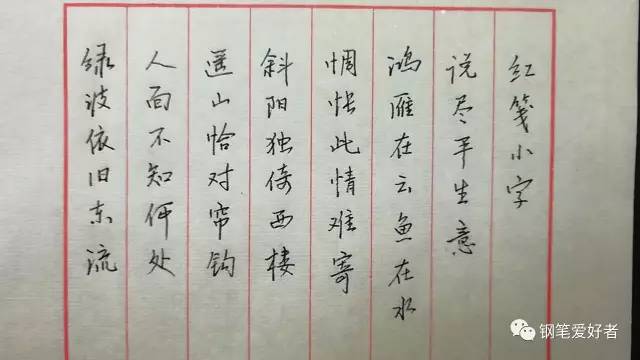 红笺小字
说尽平生意
鸿雁在云鱼在水
惆怅此情难寄
斜阳独倚西楼
遥山恰对帘钩
人面不知何处
绿波依旧东流
钢笔爱好者